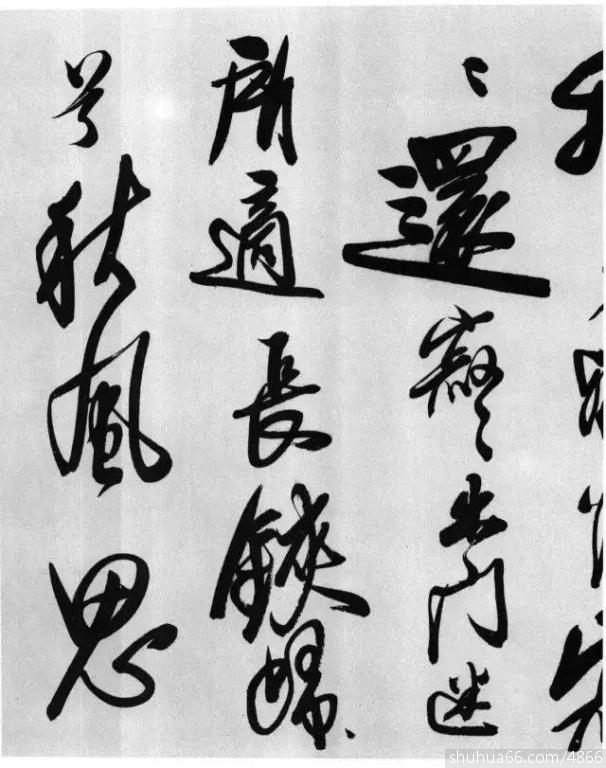 〻還寂〻出门迷
所適長鋏歸
兮秋風思
shuhua66.com/4866